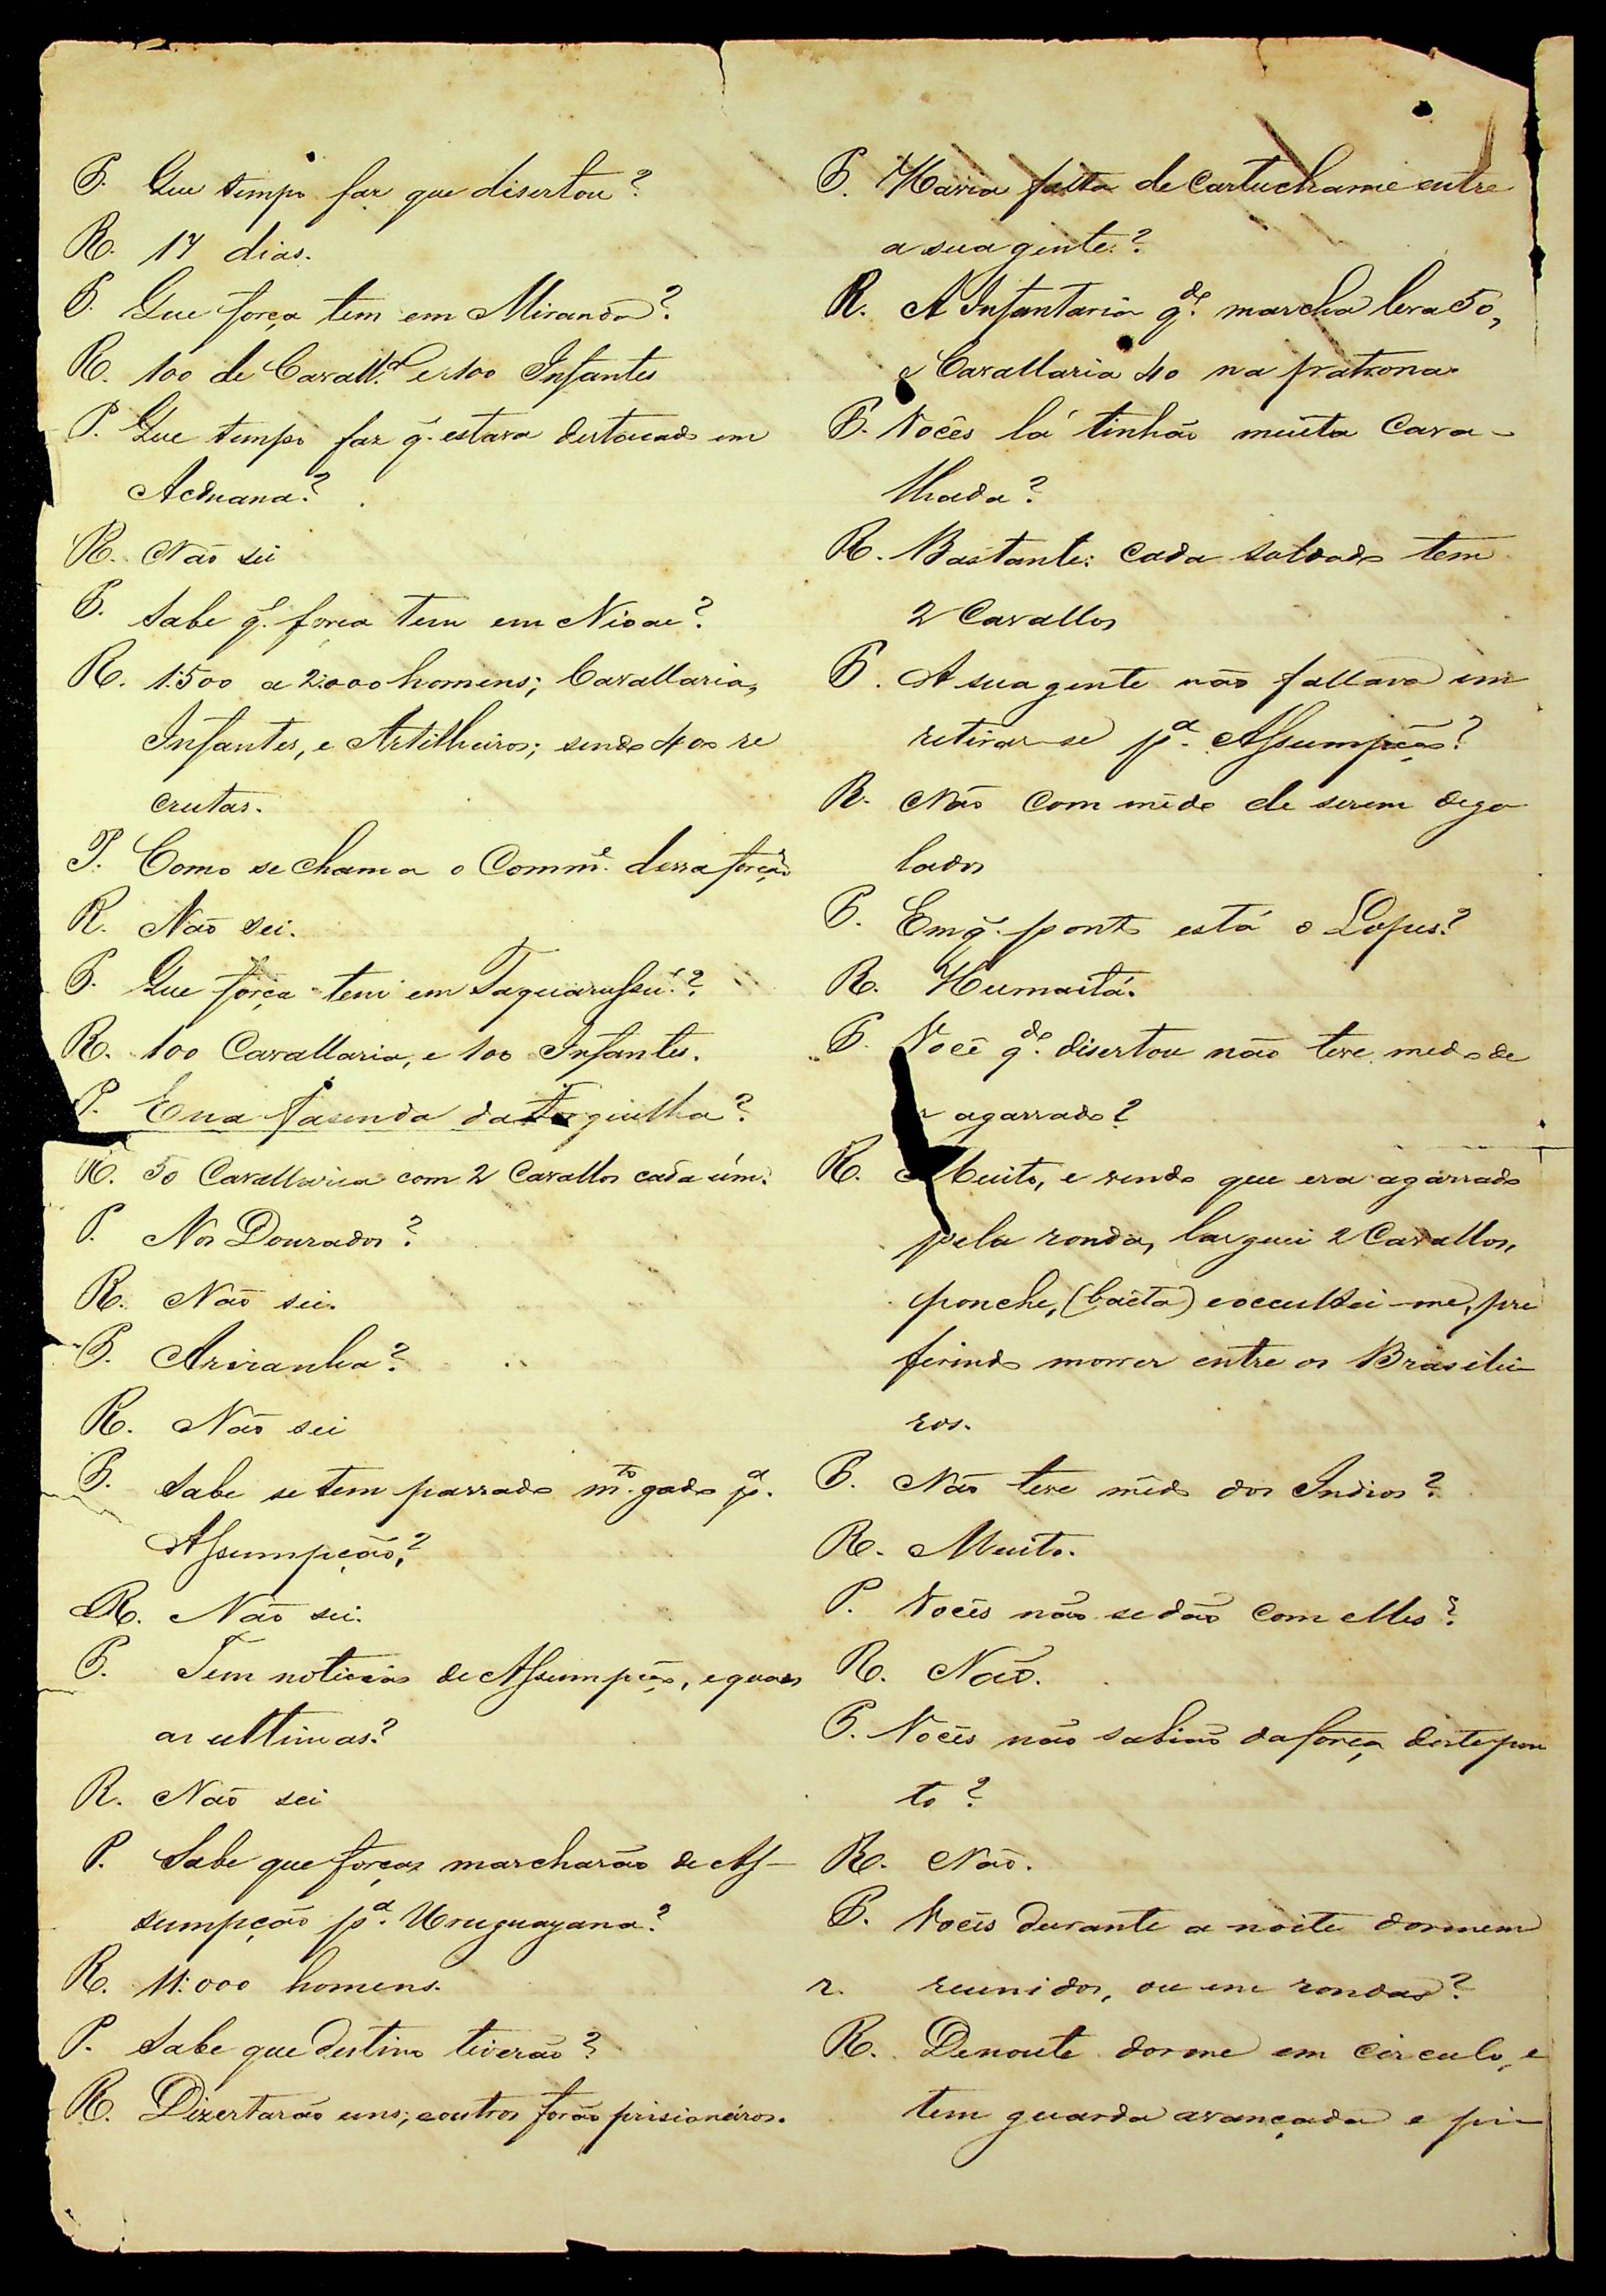 P. Que tempo faz que disertou?
R. 17 dias.
P. Que força tem em Miranda?
R. 100 de Cavall.ª e 100 Infantes
P. Que tempo faz q. estava destacado em
Aduana?
R. Não sei
P. Sabe q. força tem em Nioac?
R. 1:500 a 2:000 homens; Cavallaria,
Infantes, e Artilheiros; sendo 400 re
crutas.
P. Como se chama o Comm.e dessa força
R. Não sei.
P. Que força tem em Taquarussú?
R. 100 Cavallaria, e 100 Infantes.
P. E na fasenda da Forquilha?
R. 50 Cavallaria com 2 Cavallos cada úm.
P. Nos Dourados?
R. Não sei.
P. Ariranha?
R. Não sei
P. Sabe se tem passado m.to gado p.ª
Assumpção?
R. Não sei.
P. Tem noticias de Assumpção, e quaes
as ultimas?
R. Não sei
P. Sabe que forças marcharão de As-
sumpção p.ª Uruguayana?
R. 11:000 homens.
P. Sabe que destino tiverão?
R. Dizertarão uns; e outros forão prisioneiros.
P. Havia falta de Cartuchame entre
a sua gente?
R. A Infantaria q.do marcha leva 50,
e Cavallaria 40 na patrona.
P. Vocês lá tinhão muita Cava-
lhada?
R. Bastante: cada soldado tem
2 Cavallos
P. A sua gente não fallava em
retirar-se p.ª Assumpção?
R. Não com mêdo de serem dego
lados
P. Em q. ponto está o Lopes?
R. Humaitá.
P. Você q.do disertou não teve medo de
agarrado?
R. Muito, e vendo que era agarrado
pela ronda, larguei 2 Cavallos,
ponche, (baeta) e occultei-me, pre
ferindo morrer entre os Brasilei-
ros.
P. Não teve mêdo dos Indios?
R. Muito.
P. Vocês não se dão com elles?
R. Não.
P. Vocês não sabião da força deste pon
to?
R. Não.
P. Vocês durante a noite dormem
r. reunidos, ou em rondas?
R. Denoute dorme em circulo, e
tem guarda avançada e pi-